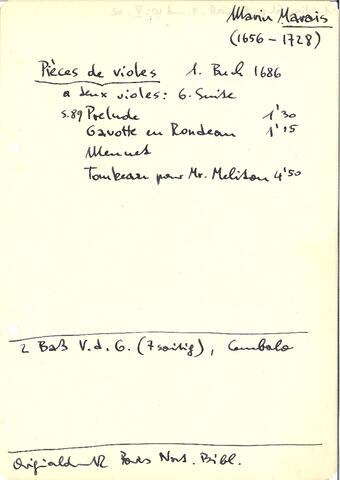 Marin Marais
(1656 – 1728)
Pièces de violes 1. Buch 1686
a deux violes: 6. Suite
S.89 Prelude 1'30
Gavotte en Rondeau 1'15
Menuet
Tombeau pour Mr. Meliton 4'50
2 Baß V.d.G. (7saitig), Cembalo
Paris Nat. Bibl.